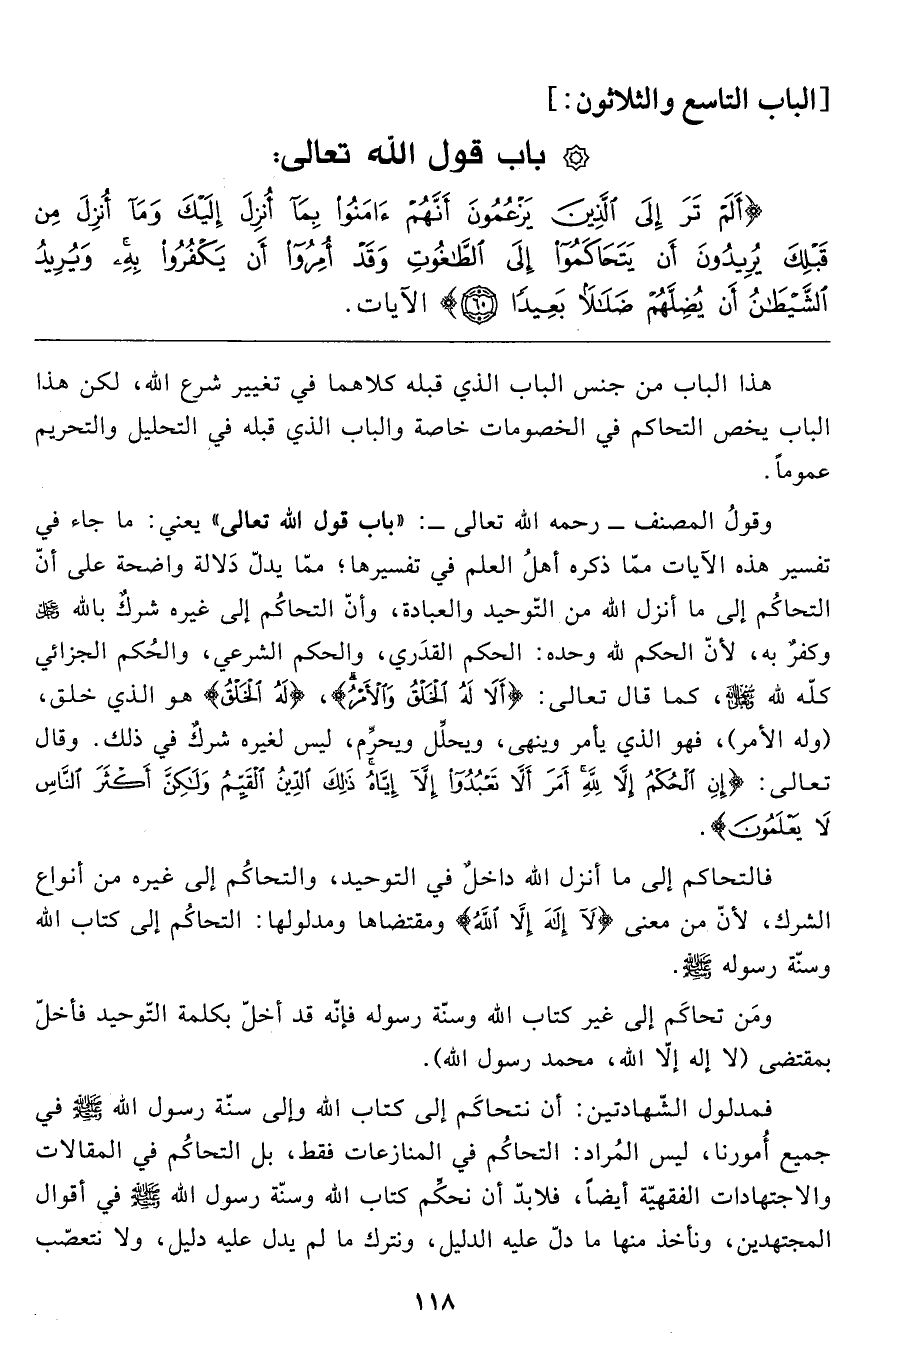 [الباب التاسع والثلاثون:]
۞ باب قول الله تعالى:
﴿أَلَمْ تَرَ إِلَى ٱلَّذِينَ يَزْعُمُونَ أَنَّهُمْ ءَامَنُوا۟ بِمَآ أُنزِلَ إِلَيْكَ وَمَآ أُنزِلَ مِن
قَبْلِكَ يُرِيدُونَ أَن يَتَحَاكَمُوٓا۟ إِلَى ٱلطَّٰغُوتِ وَقَدْ أُمِرُوٓا۟ أَن يَكْفُرُوا۟ بِهِۦۖ وَيُرِيدُ
ٱلشَّيْطَٰنُ أَن يُضِلَّهُمْ ضَلَٰلًۢا بَعِيدًا ٦٠﴾ الآيات.
هذا الباب من جنس الباب الذي قبله كلاهما في تغيير شرع الله، لكن هذا
الباب يخص التحاكم في الخصومات خاصة والباب الذي قبله في التحليل والتحريم
عموماً.
وقولُ المصنف ـ رحمه الله تعالى ـ: «باب قول الله تعالى» يعني: ما جاء في
تفسير هذه الآيات ممّا ذكره أهلُ العلم في تفسيرها؛ ممّا يدلّ دَلالة واضحة على أنّ
التحاكُم إلى ما أنزل الله من التّوحيد والعبادة، وأنّ التحاكُم إلى غيره شركٌ بالله ﷻ
وكفرٌ به، لأنّ الحكم لله وحده: الحكم القدَري، والحكم الشرعي، والحُكم الجزائي
كلّه لله ﷻ، كما قال تعالى: ﴿أَلَا لَهُ ٱلْخَلْقُ وَٱلْأَمْرُۗ﴾، ﴿لَهُ ٱلْخَلْقُ﴾ هو الذي خلق،
(وله الأمر)، فهو الذي يأمر وينهى، ويحلِّل ويحرِّم، ليس لغيره شركٌ في ذلك. وقال
تعالى: ﴿إِنِ ٱلْحُكْمُ إِلَّا لِلَّهِۚ أَمَرَ أَلَّا تَعْبُدُوٓا۟ إِلَّآ إِيَّاهُۚ ذَٰلِكَ ٱلدِّينُ ٱلْقَيِّمُ وَلَٰكِنَّ أَكْثَرَ ٱلنَّاسِ
لَا يَعْلَمُونَ﴾.
فالتحاكم إلى ما أنزل الله داخلٌ في التوحيد، والتحاكُم إلى غيره من أنواع
الشرك، لأنّ من معنى ﴿لَآ إِلَٰهَ إِلَّا ٱللَّهُ﴾ ومقتضاها ومدلولها: التحاكُم إلى كتاب الله
وسنّة رسوله ﷺ.
ومَن تحاكَم إلى غير كتاب الله وسنّة رسوله فإنّه قد أخلّ بكلمة التّوحيد فأخلّ
بمقتضى (لا إله إلّا الله، محمد رسول الله).
فمدلول الشّهادتين: أن نتحاكَم إلى كتاب الله وإلى سنّة رسول الله ﷺ في
جميع أُمورنا، ليس المُراد: التحاكُم في المنازعات فقط، بل التحاكُم في المقالات
والاجتهادات الفقهيّة أيضاً، فلابدّ أن نحكِّم كتاب الله وسنّة رسول الله ﷺ في أقوال
المجتهدين، ونأخذ منها ما دلّ عليه الدليل، ونترك ما لم يدل عليه دليل، ولا نتعصّب
١١٨